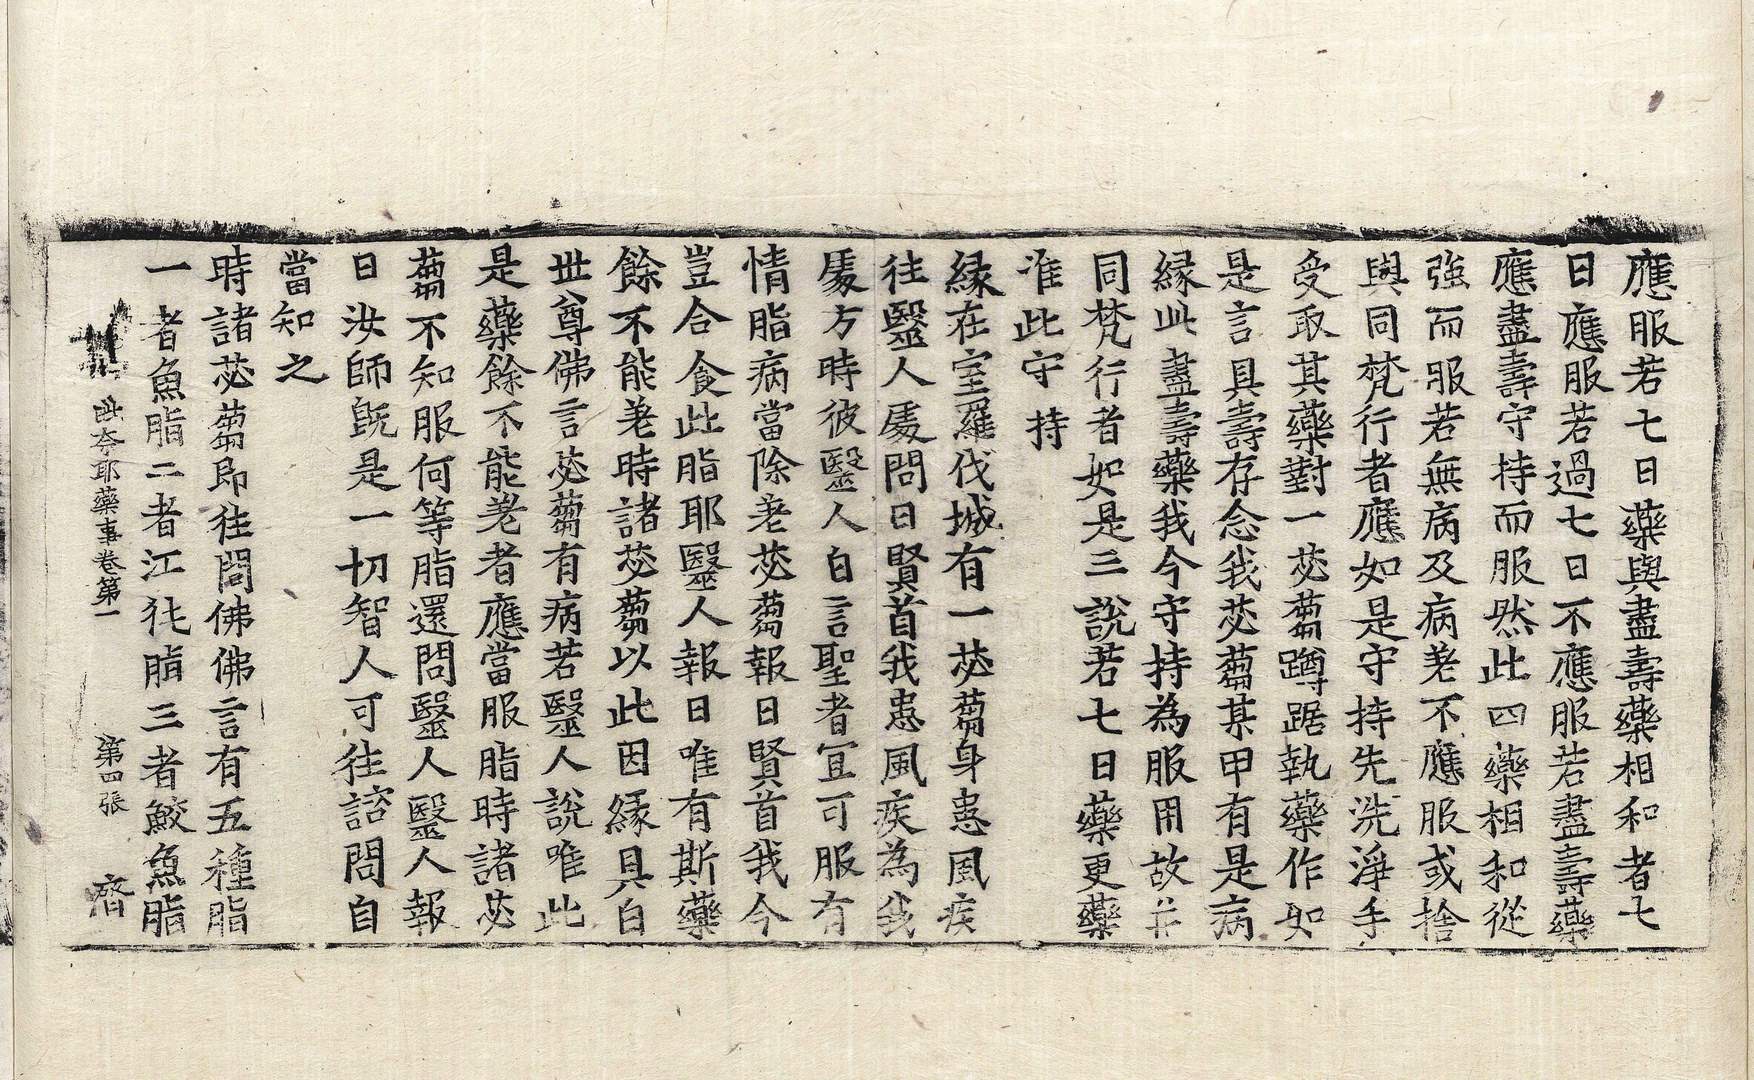 應服若七日藥與盡壽藥相和者七
日應服若過七日不應服若盡壽藥
應盡壽守持而服然此四藥相和從
強而服若無病及病差不應服或捨
與同梵行者應如是守持先洗淨手
受取其藥對一苾蒭蹲踞執藥作如
是言具壽存念我苾蒭某甲有是病
緣此盡壽藥我今守持為服用故并
同梵行者如是三說若七日藥更藥
准此守持
緣在室羅伐城有一苾蒭身患風疾
往毉人處問曰賢首我患風疾為我
處方時彼毉人白言聖者宜可服有
情脂病當除差苾蒭報曰賢首我今
豈合食此脂耶毉人報曰唯有斯藥
餘不能差時諸苾蒭以此因緣具白
世尊佛言苾蒭有病若毉人說唯此
是藥餘不能差者應當服脂時諸苾
蒭不知服何等脂還問毉人毉人報
曰汝師旣是一切智人可往諮問自
當知之
時諸苾蒭即往問佛佛言有五種脂
一者魚脂二者江㹠脂三者鮫魚脂
毗奈耶藥事卷第一 第四張 濟